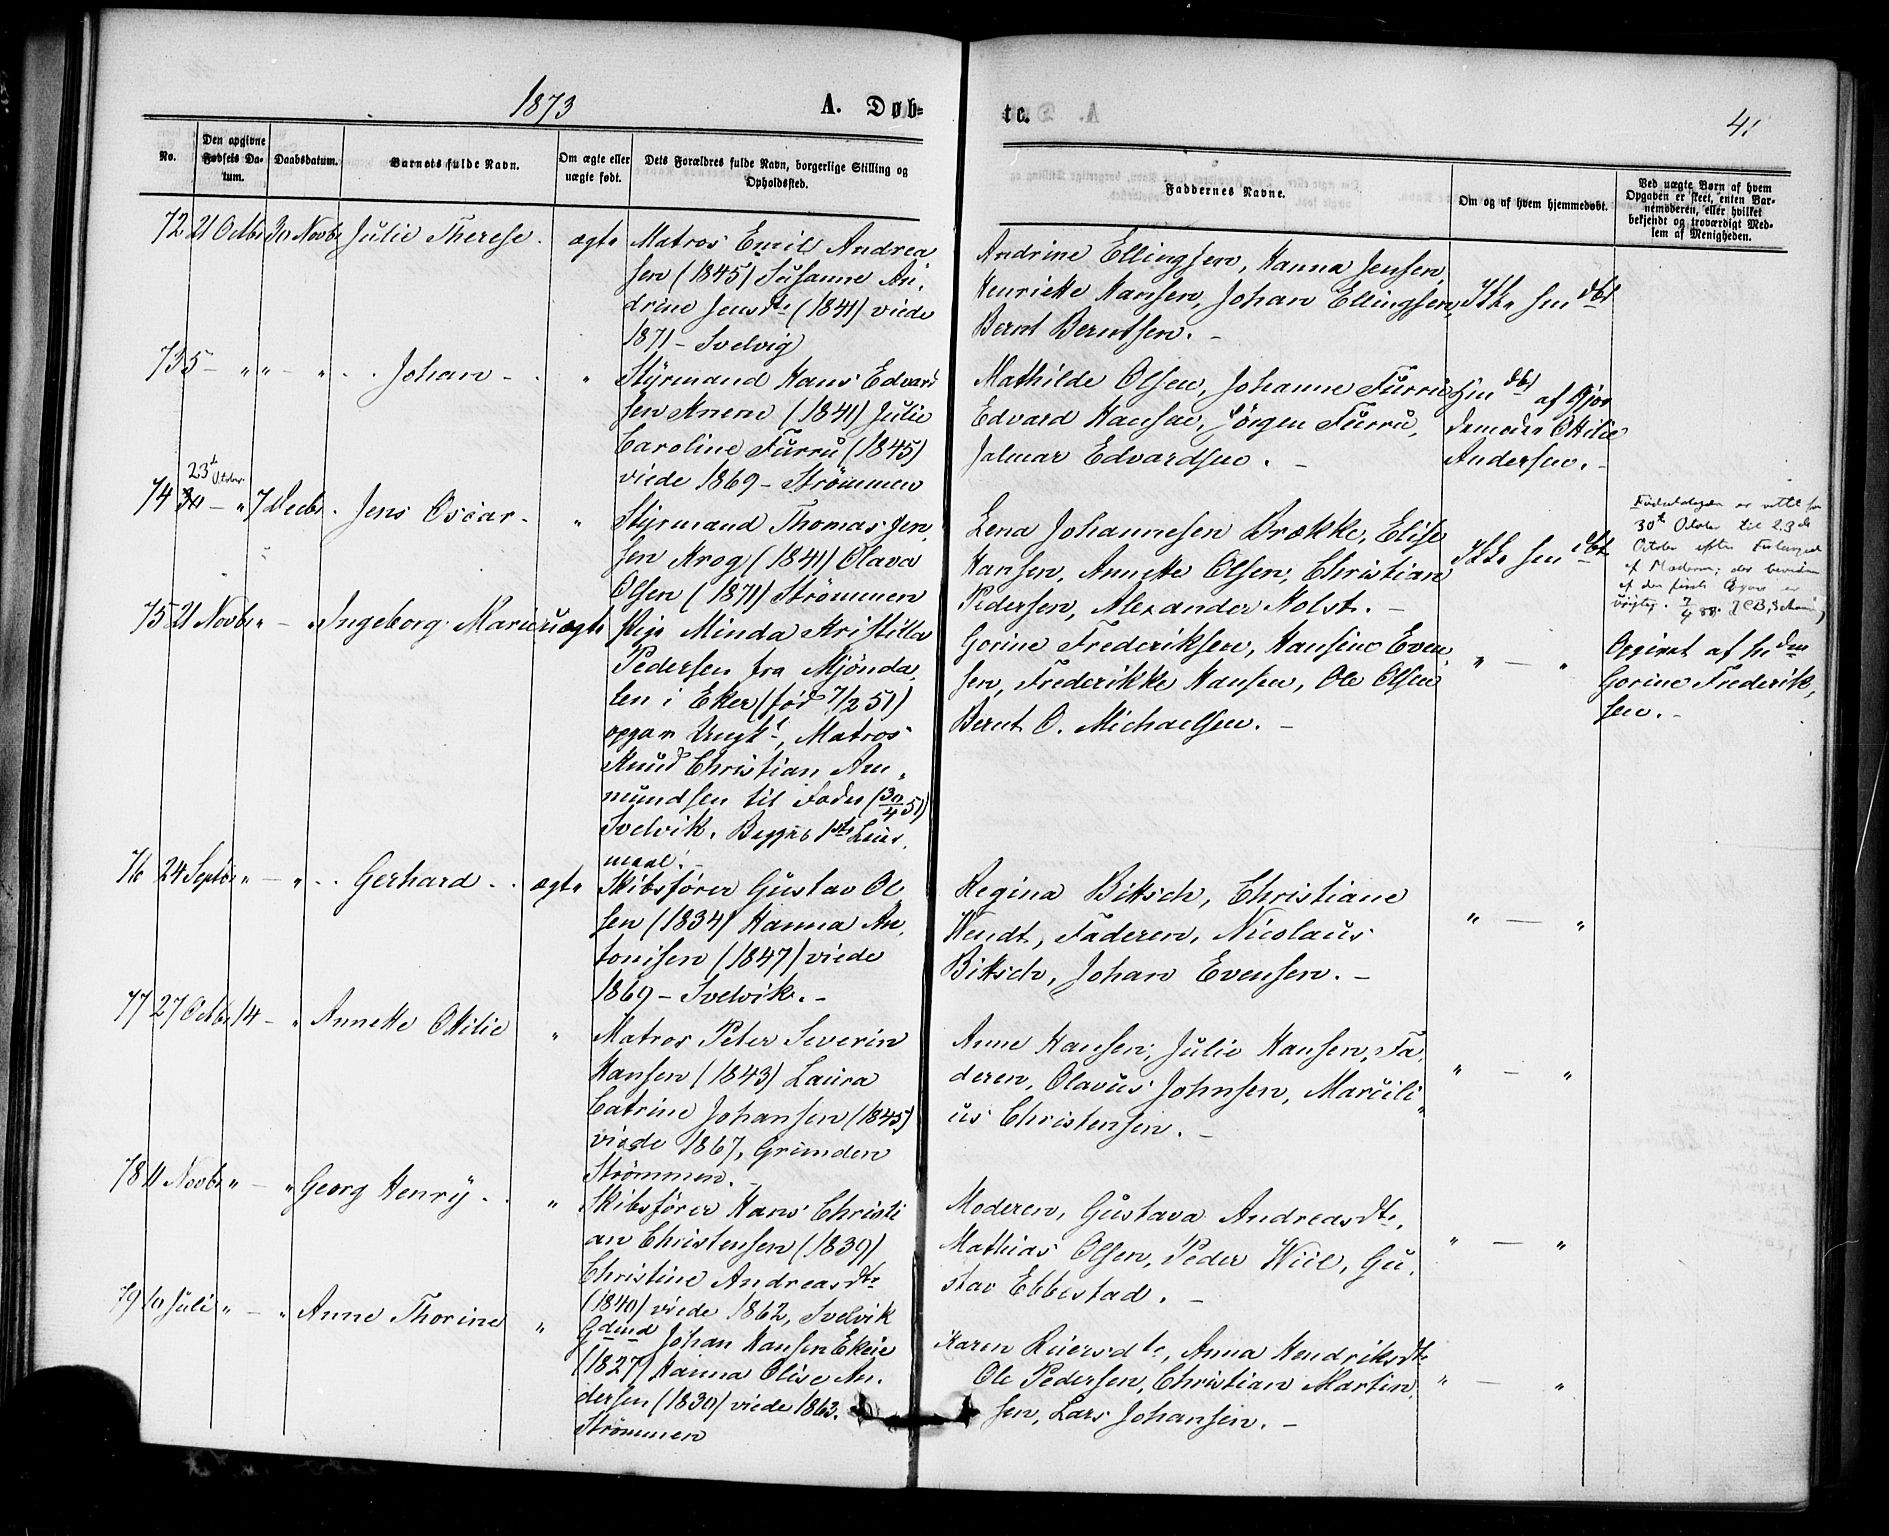 1873
A. Døb-
te.
41
No.
Den opgivne Fødsels Datum.
Daabsdatum.
Barnets fulde Navn.
Om ægte eller uægte født.
Dets Forældres fulde Navn, borgerlige Stilling og Opholdssted.
Faddernes Navne.
Om og af hvem hjemmedøbt.
Ved uægte Børn af hvem Opgaven er skeet, enten Barnemoderen, eller hvilket bekjendt og troværdigt Medlem af Menigheden.
72 21 Octbr 30 Novbr Julie Therese. ægte Matros Emil Andrea
sen (1845) Susanne An,
drine Jensdtr (1841) viede
1871 - Svelvig
Andrine Ellingsen, Hanna Jensen,
Henriette Hansen, Johan Ellingsen,
Bernt Berntsen. -
Ikke hmdbt
73 5 - " " - " - Johan - " Styrmand Hans Edvard
sen Knem (1841) Julie
Caroline Furru (1845)
viede 1869 - Strømmen
Mathilde Olsen, Johanne Furru,
Edvard Hansen, Jørgen Furru,
Jalmar Edvardsen. -
hmdbt af Gjor
demoder Ottilie
Andersen. -
23d October
74 30 - " 7 Decbr. Jens Oscar. " Styrmand Thomas Jen,
sen Krog (1841) Olava
Olsen (1871) Strømmen
Lena Johannesen Brække, Elise
Hansen, Annette Olsen, Christian
Pedersen, Alexander Holst. -
Ikke hmdbt
Fødselsdagen er rettet fra
30te October til 23de
October efter Forlangende
af Moderen; der bevidner
at den første Opgave er
urigtig. 7/4 88.
75 21 Novbr " - " Ingeborg Marie uægte Pige Minda Kristilla
Pedersen fra Mjønda,
len i Eker (fød 7/2 51)
opgav Ungk., Matros
Knud Christian Am,
mundsen til Fader (30/4 51)
Svelvik. Begges 1ste Leiers,
maal. -
Gorine Frederiksen, Hansine Even
sen, Frederikke Hansen, Ole Olsen
Bernt O. Michaelsen. -
" - "
Opgivet af
Gorine Frederik,
sen. -
76 24 Septbr " - " - Gerhard - ægte Skibsfører Gustav Ol
sen (1834) Hanna An,
tonisen (1847) viede
1869 - Svelvik. -
Regina Bittsch, Christiane
Wendt, Faderen, Nicolaus
Bittsch, Johan Evensen. -
" - "
77 27 Octbr 14 - " Annette Ottilie " Matros Peter Severin
Hansen (1843) Laura
Catrine Johansen (1845)
viede 1867, Grunden
Strømmen. -
Anne Hansen, Julie Hansen, Fa,
deren, Olavus Johnsen, Marcili,
us Christensen. -
" - "
78 11 Novbr " - " Georg Henry - " Skibsfører Hans Christi
an Christensen (1839)
Christine Andreasdtr
(1840) viede 1862, Svelvik
Moderen, Gustava Andreasdtr,
Mathias Olsen, Peder Wiil, Gu,
stav Ebbestad. -
" - "
79 10 Juli " - " Anne Thorine " Gdmd Johan Hansen Ekeie
(1827) Hanna Olise An,
dersen (1830) viede 1863.
Strømmen
Karen Reiersdtr, Anna Hendriksdtr
Ole Pedersen, Christian Martin,
sen, Lars Johansen. -
" - "